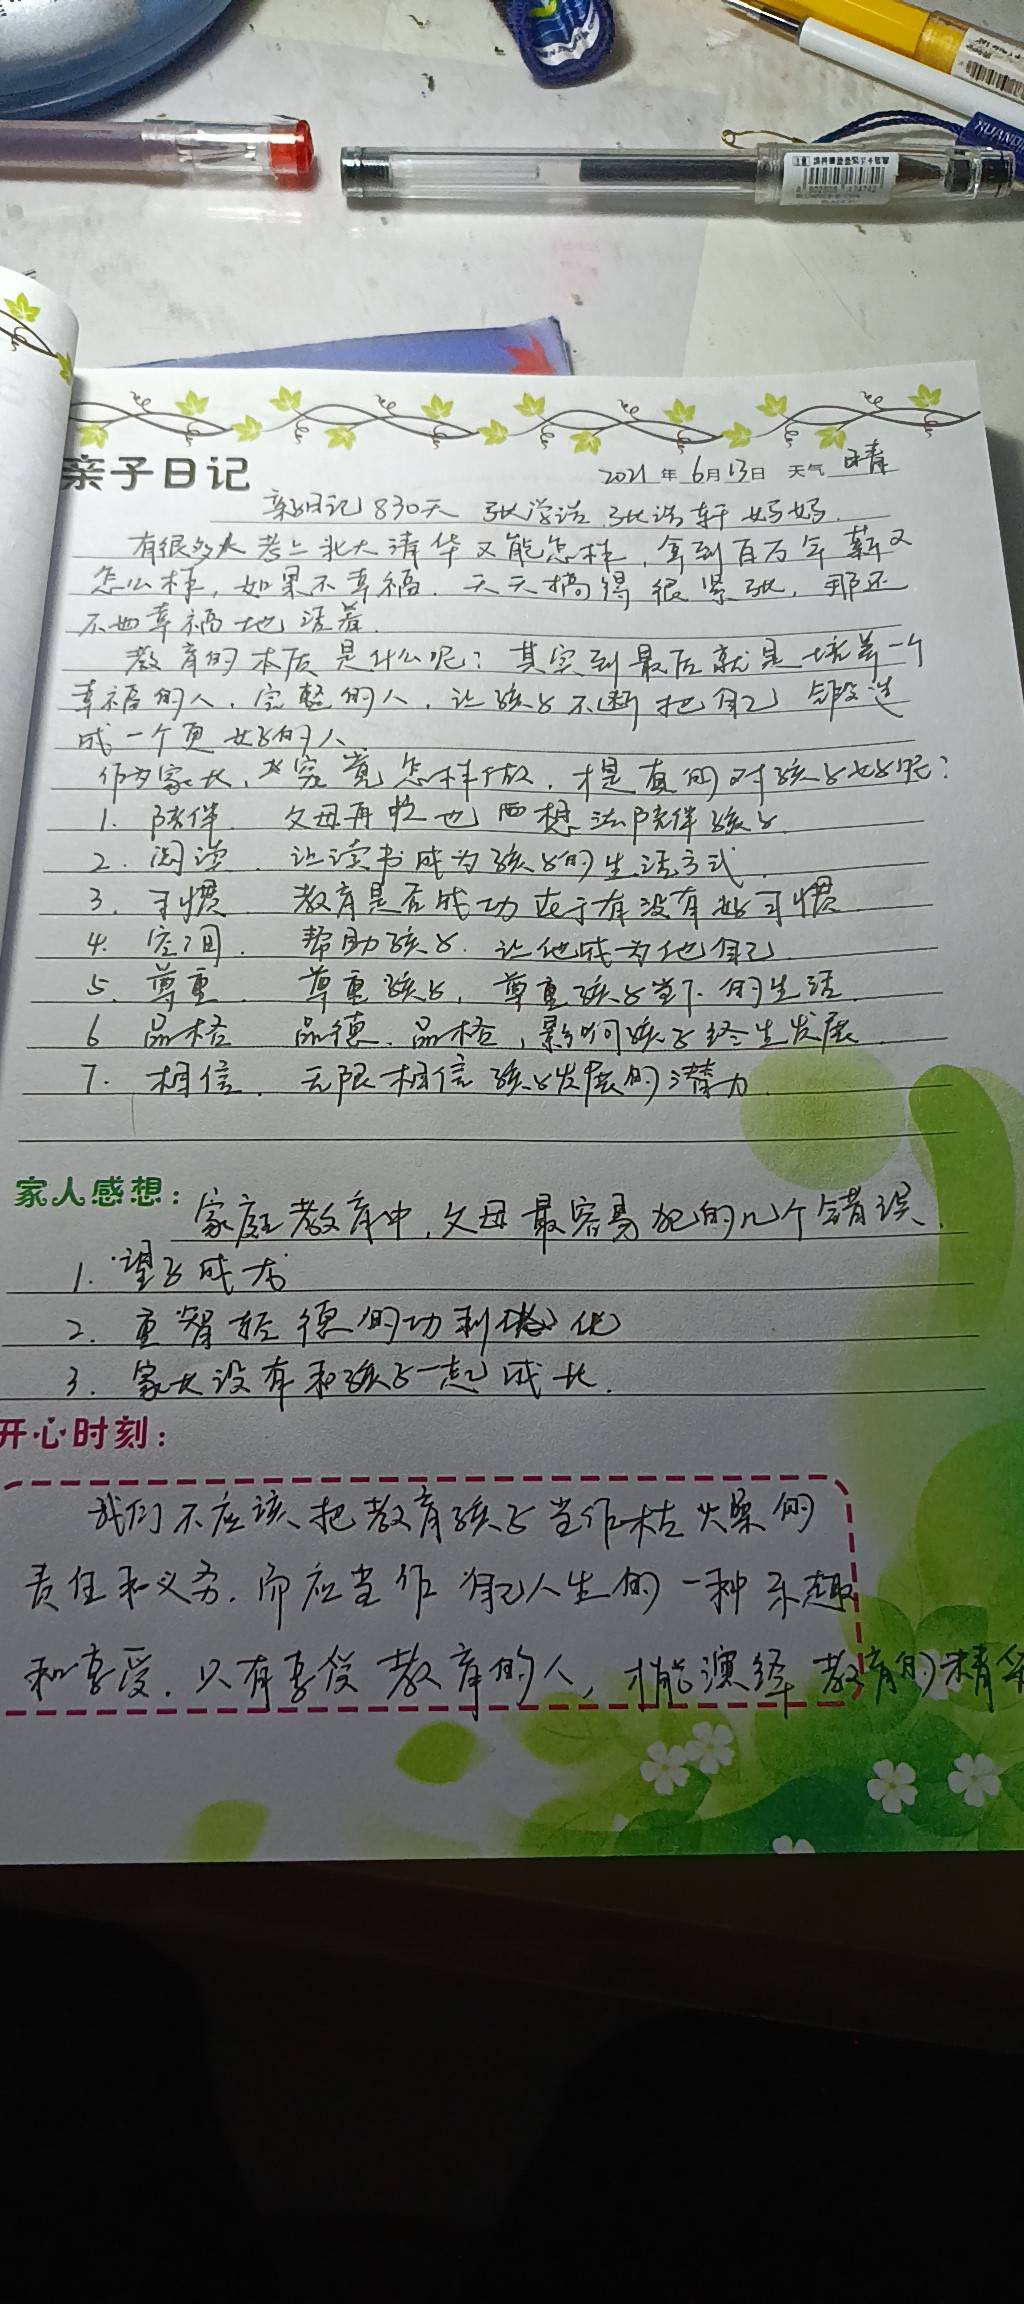 亲子日记
2021 年 6月13日 天气 晴
亲子日记830天 张学洁 张浩轩 妈妈
有很多人考上北大清华又能怎样,拿到百万年薪又
怎么样,如果不幸福.天天搞得很紧张,那还
不如幸福地活着.
教育的本质是什么呢?其实到最后就是培养一个
幸福的人.完整的人.让孩子不断把自己 锻造
成一个更好的人
作为家长,究竟怎样做,才是真的对孩子好呢?
1. 陪伴. 父母再忙也要想法陪伴孩子.
2. 阅读. 让读书成为孩子的生活方式.
3. 习惯 教育是否成功在于有没有好习惯.
4. 空间. 帮助孩子.让他成为他自己.
5. 尊重. 尊重孩子,尊重孩子当下的生活.
6 品格 品德.品格,影响孩子终生发展.
7. 相信. 无限相信孩子发展的潜力.
家人感想:家庭教育中,父母最容易犯的几个错误.
1. 望子成龙
2. 重智轻德的功利化
3. 家长没有和孩子一起成长.
开心时刻:
我们不应该把教育孩子当作枯燥的
责任和义务.而应当作自己人生的一种乐趣
和享受.只有享受教育的人,才能演绎教育的精华